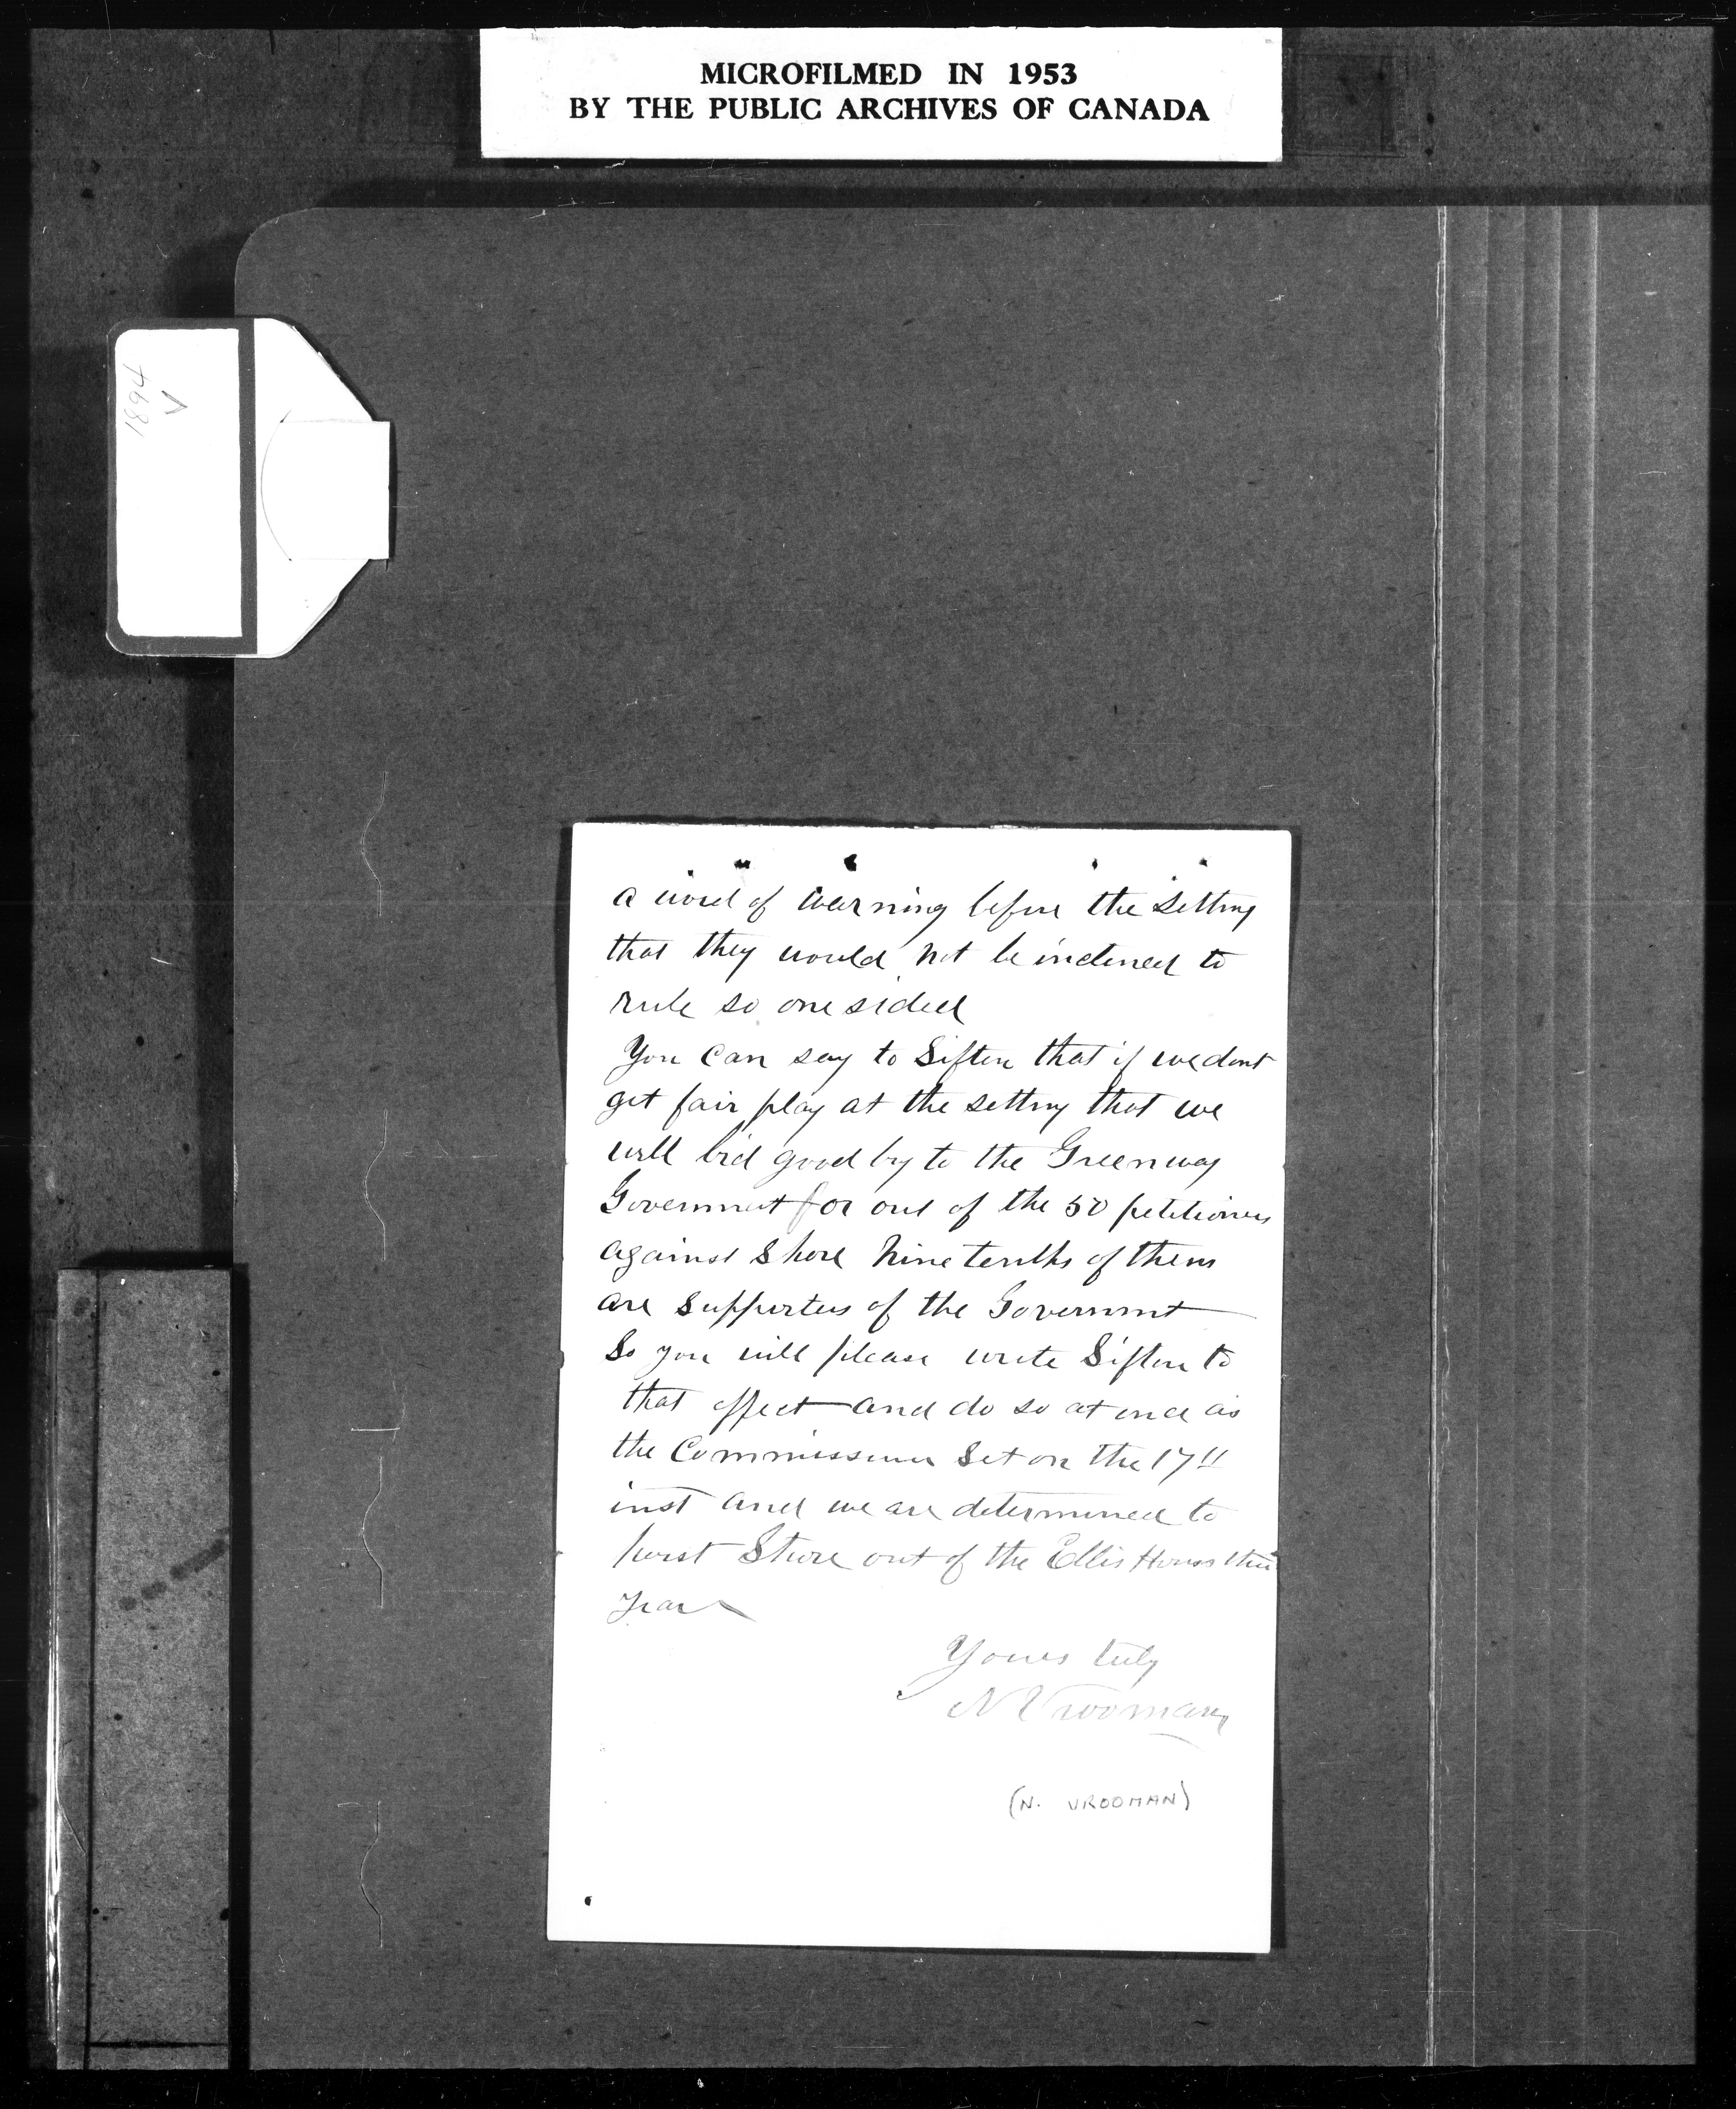 MICROFILMED IN 1953
BY THE PUBLIC ARCHIVES OF CANADA
1894
V
a word of warning before the setting
that they would not be inclined to
rule so one sided
You can say to Sifton that if we dont
get fair play at the setting that we
will bid good by to the Greenway
Government for out of the 50 petitioners
against Shore Nine tenths of them
are Supporters of the Governmt
So you will please write Sifton to
that effect and do so at once as
the Commissioners Set on the 17"
inst and we are determined to
Shore out of the Ellis House this
Year
Yours truly
N Vrooman
(N. VROOMAN)